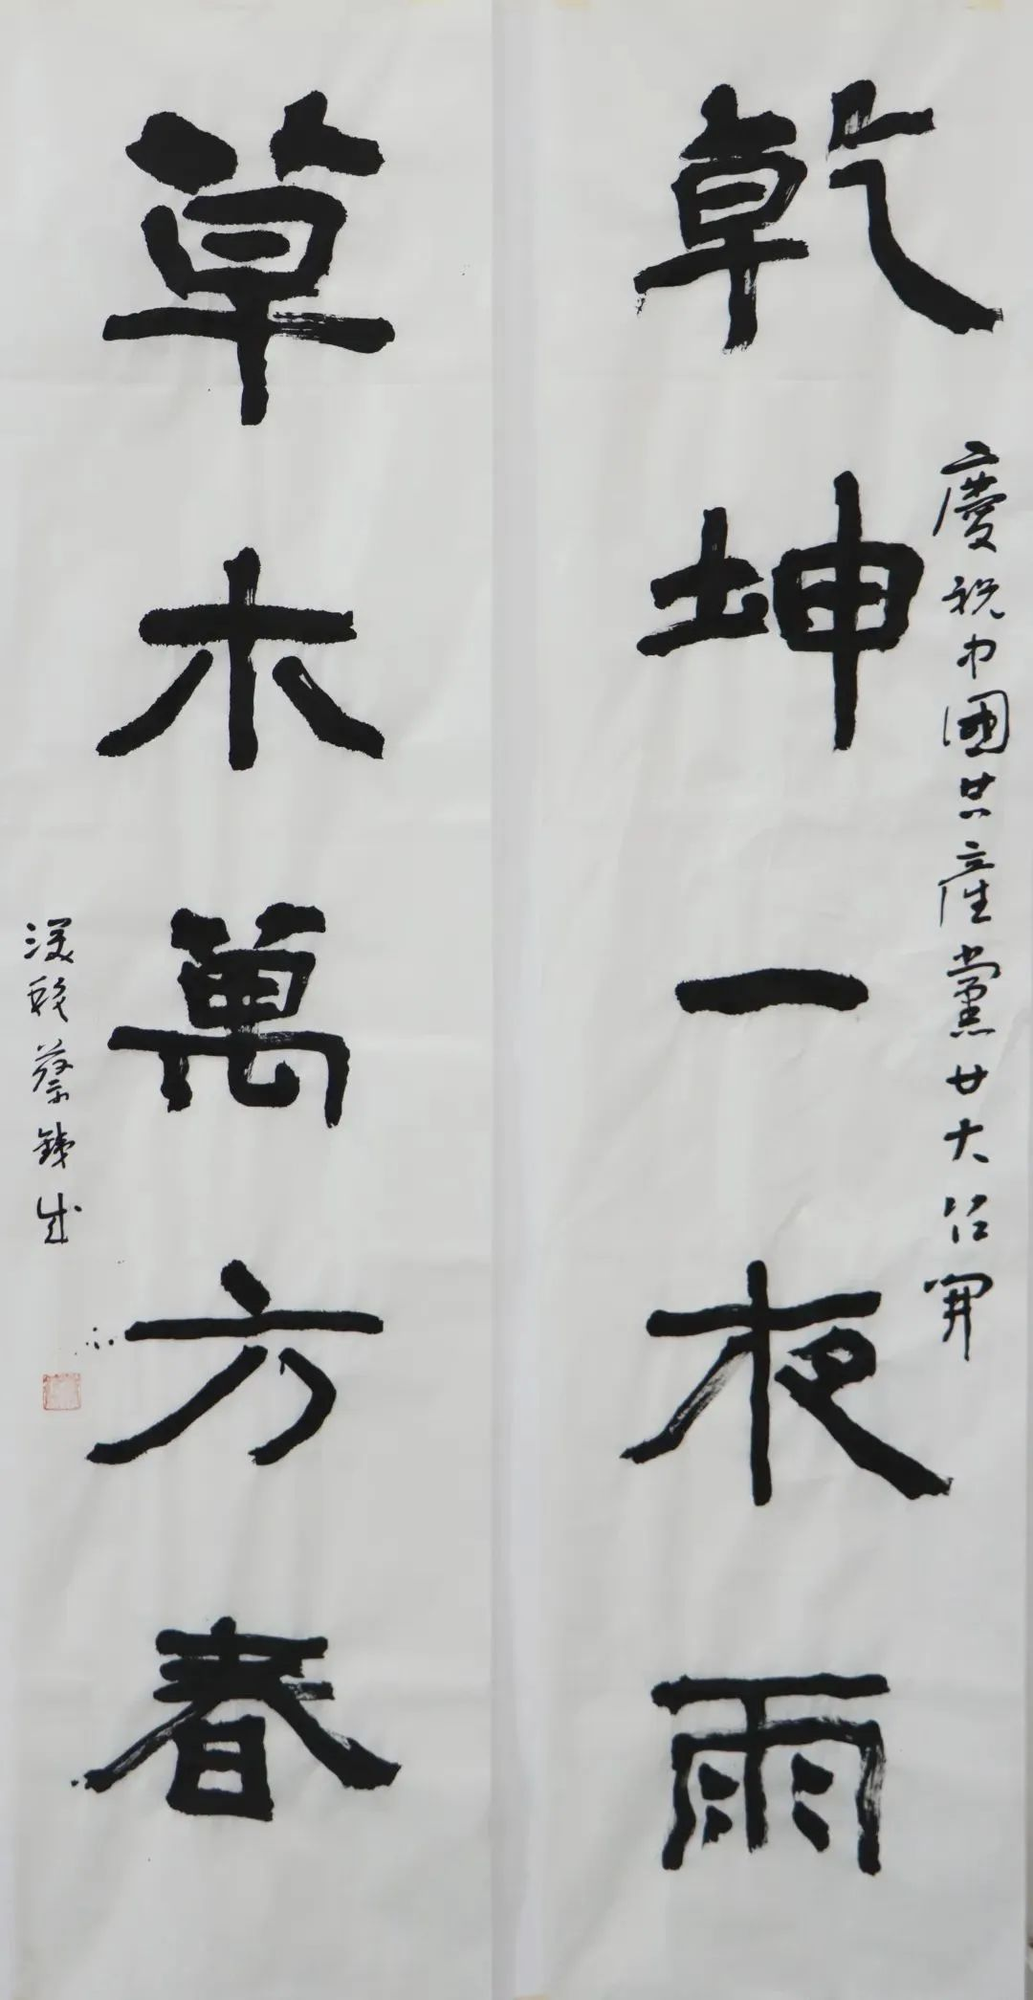 乾坤一夜雨
慶祝中國共產黨廿大召開
草木萬方春
蔡鉄成